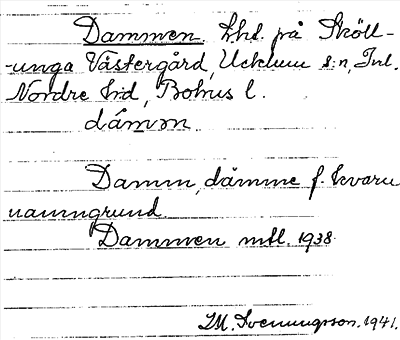 Dammen. Lht. på Sköll-
-unga Västergård, Ucklum s:n, Inl.
Nordre hd, Bohus l.
dámən
Damm, dämme f. kvarn
namngrund.
Dammen mtl. 1938
I.M. Svenungsson. 1941.